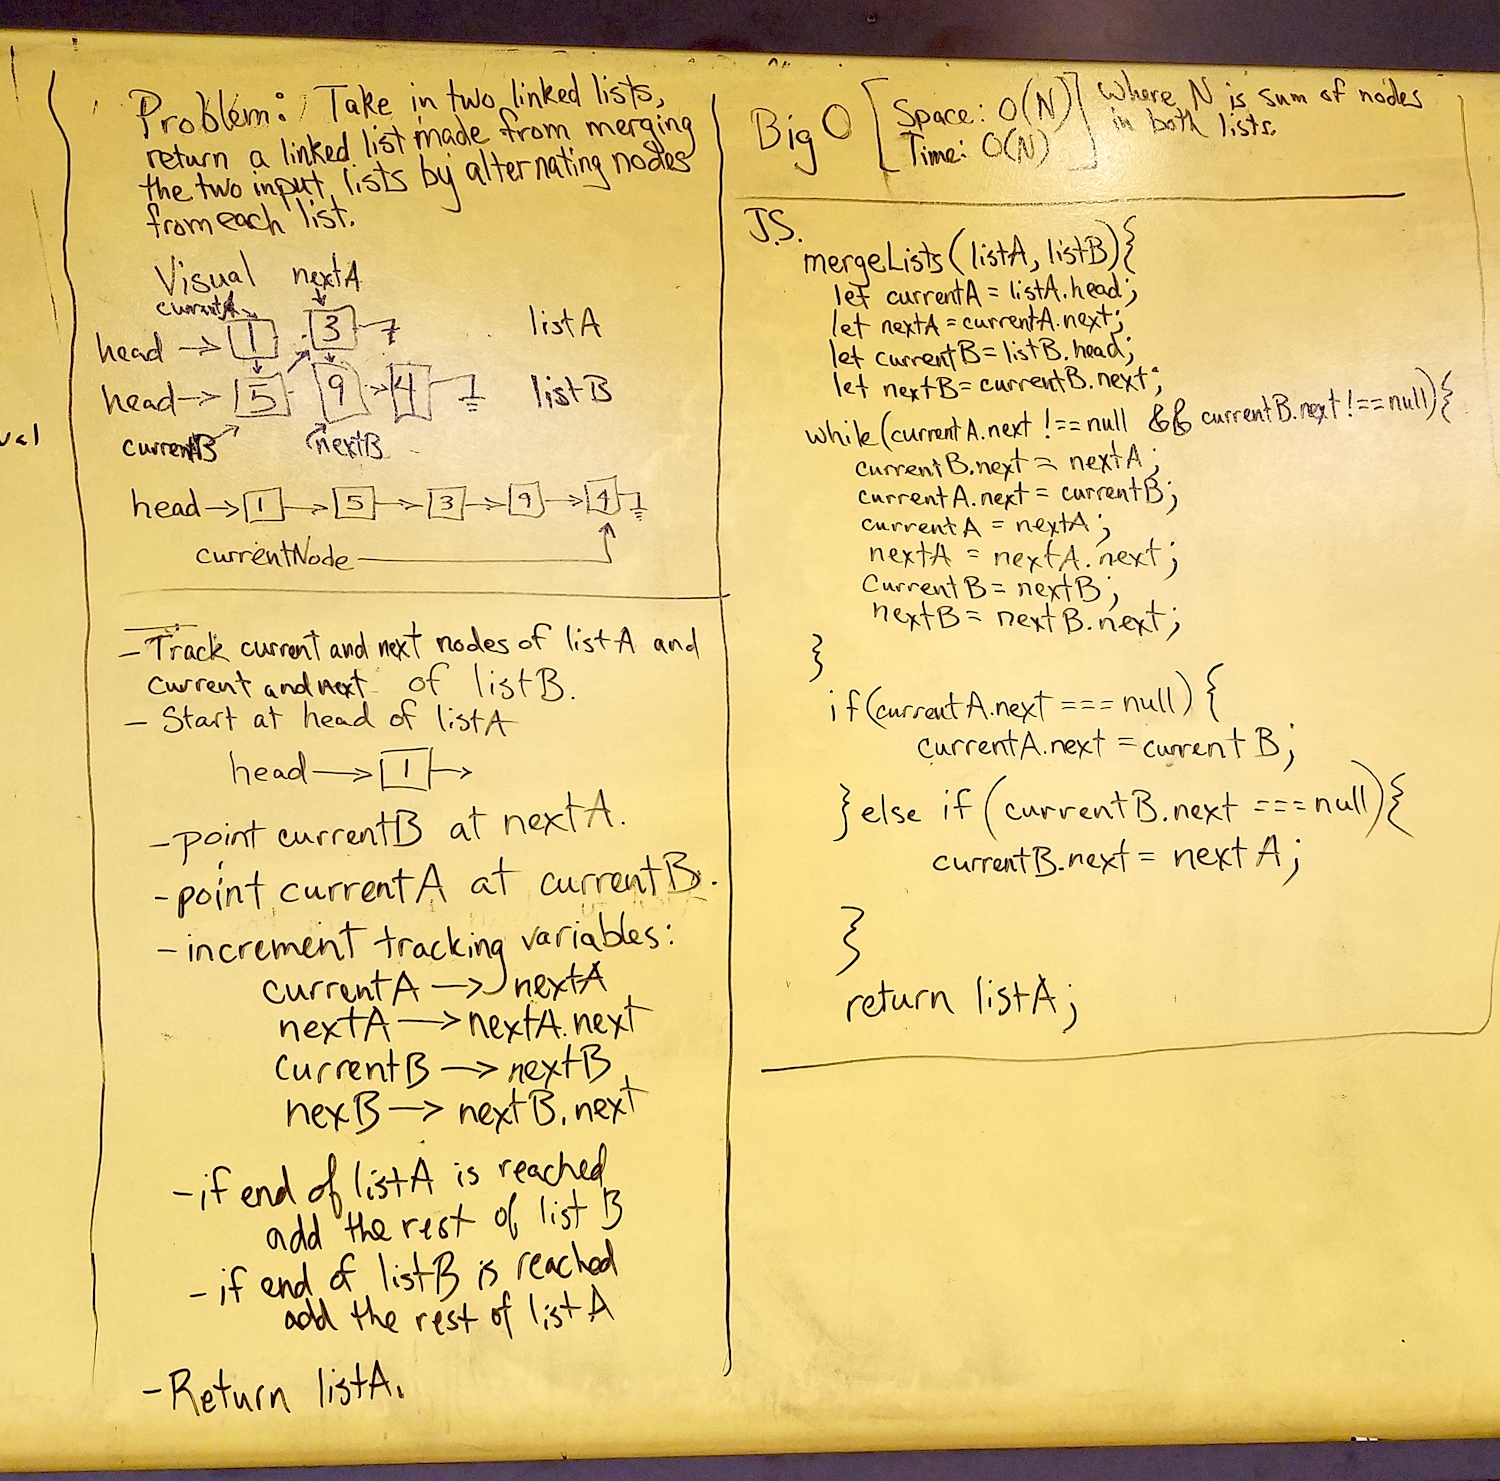 val
Problem: Take in two linked lists,
return a linked list made from merging
the two input lists by alternating nodes
from each list.
Visual nextA
currentA
head → 1 3 listA
head → 5 9 4 listB
currentB nextB
head → 1 → 5 → 3 → 9 → 4
currentNode
- Track current and next nodes of listA and
current and next of listB.
- Start at head of listA
head → 1 →
- point currentB at nextA.
- point currentA at currentB.
- increment tracking variables:
currentA → nextA
nextA → nextA.next
currentB → nextB
nexB → nextB.next
- if end of listA is reached
add the rest of list B
- if end of listB is reached
add the rest of listA
- Return listA.
Big O [ Space: O(N) ] where N is sum of nodes
Time: O(N) in both lists.
J.S.
mergeLists(listA, listB){
let currentA = listA.head;
let nextA = currentA.next;
let currentB = listB.head;
let nextB = currentB.next;
while(currentA.next !== null && currentB.next !== null){
currentB.next = nextA;
currentA.next = currentB;
currentA = nextA;
nextA = nextA.next;
currentB = nextB;
nextB = nextB.next;
}
if(currentA.next === null) {
currentA.next = currentB;
} else if (currentB.next === null){
currentB.next = nextA;
}
return listA;